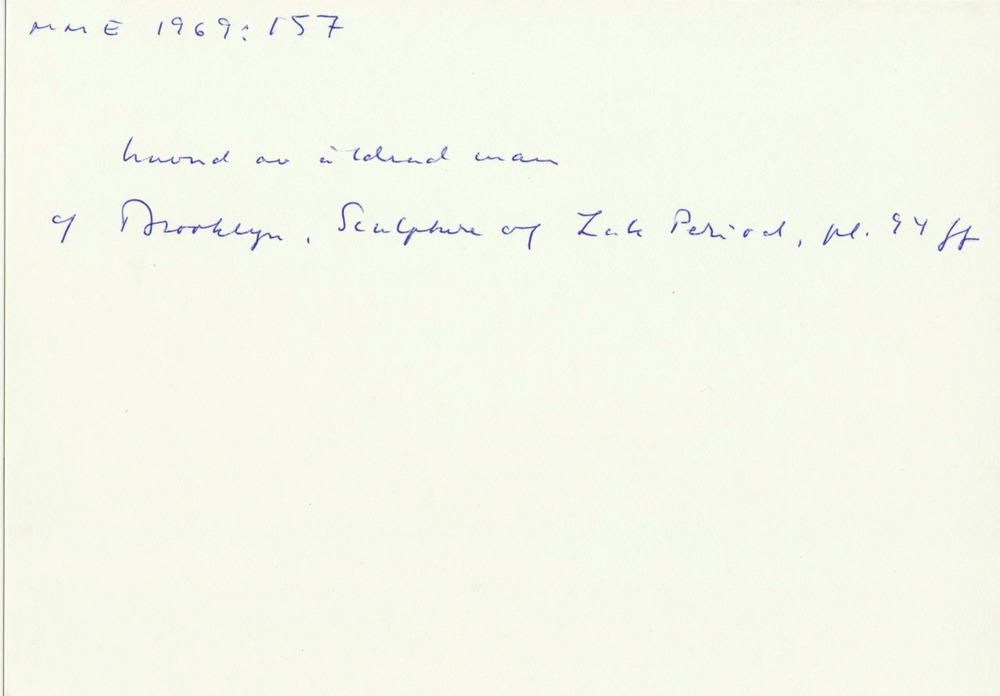 MME 1969:157
huvud av åldrad man
cf Brooklyn, Sculpture of Late Period, pl. 94 ff